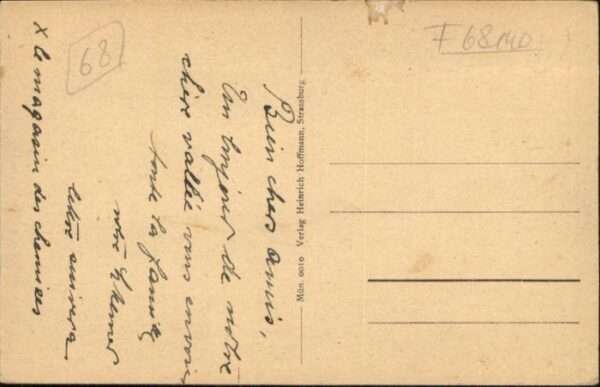 Bien chers amis,
Un bonjour de notre
chère vallée vous envoie
toute la famille
votre
lettre suivra
X le magasin des chemises
68
F 68
Mün. 0010 Verlag Heinrich Hoffmann, Strassburg